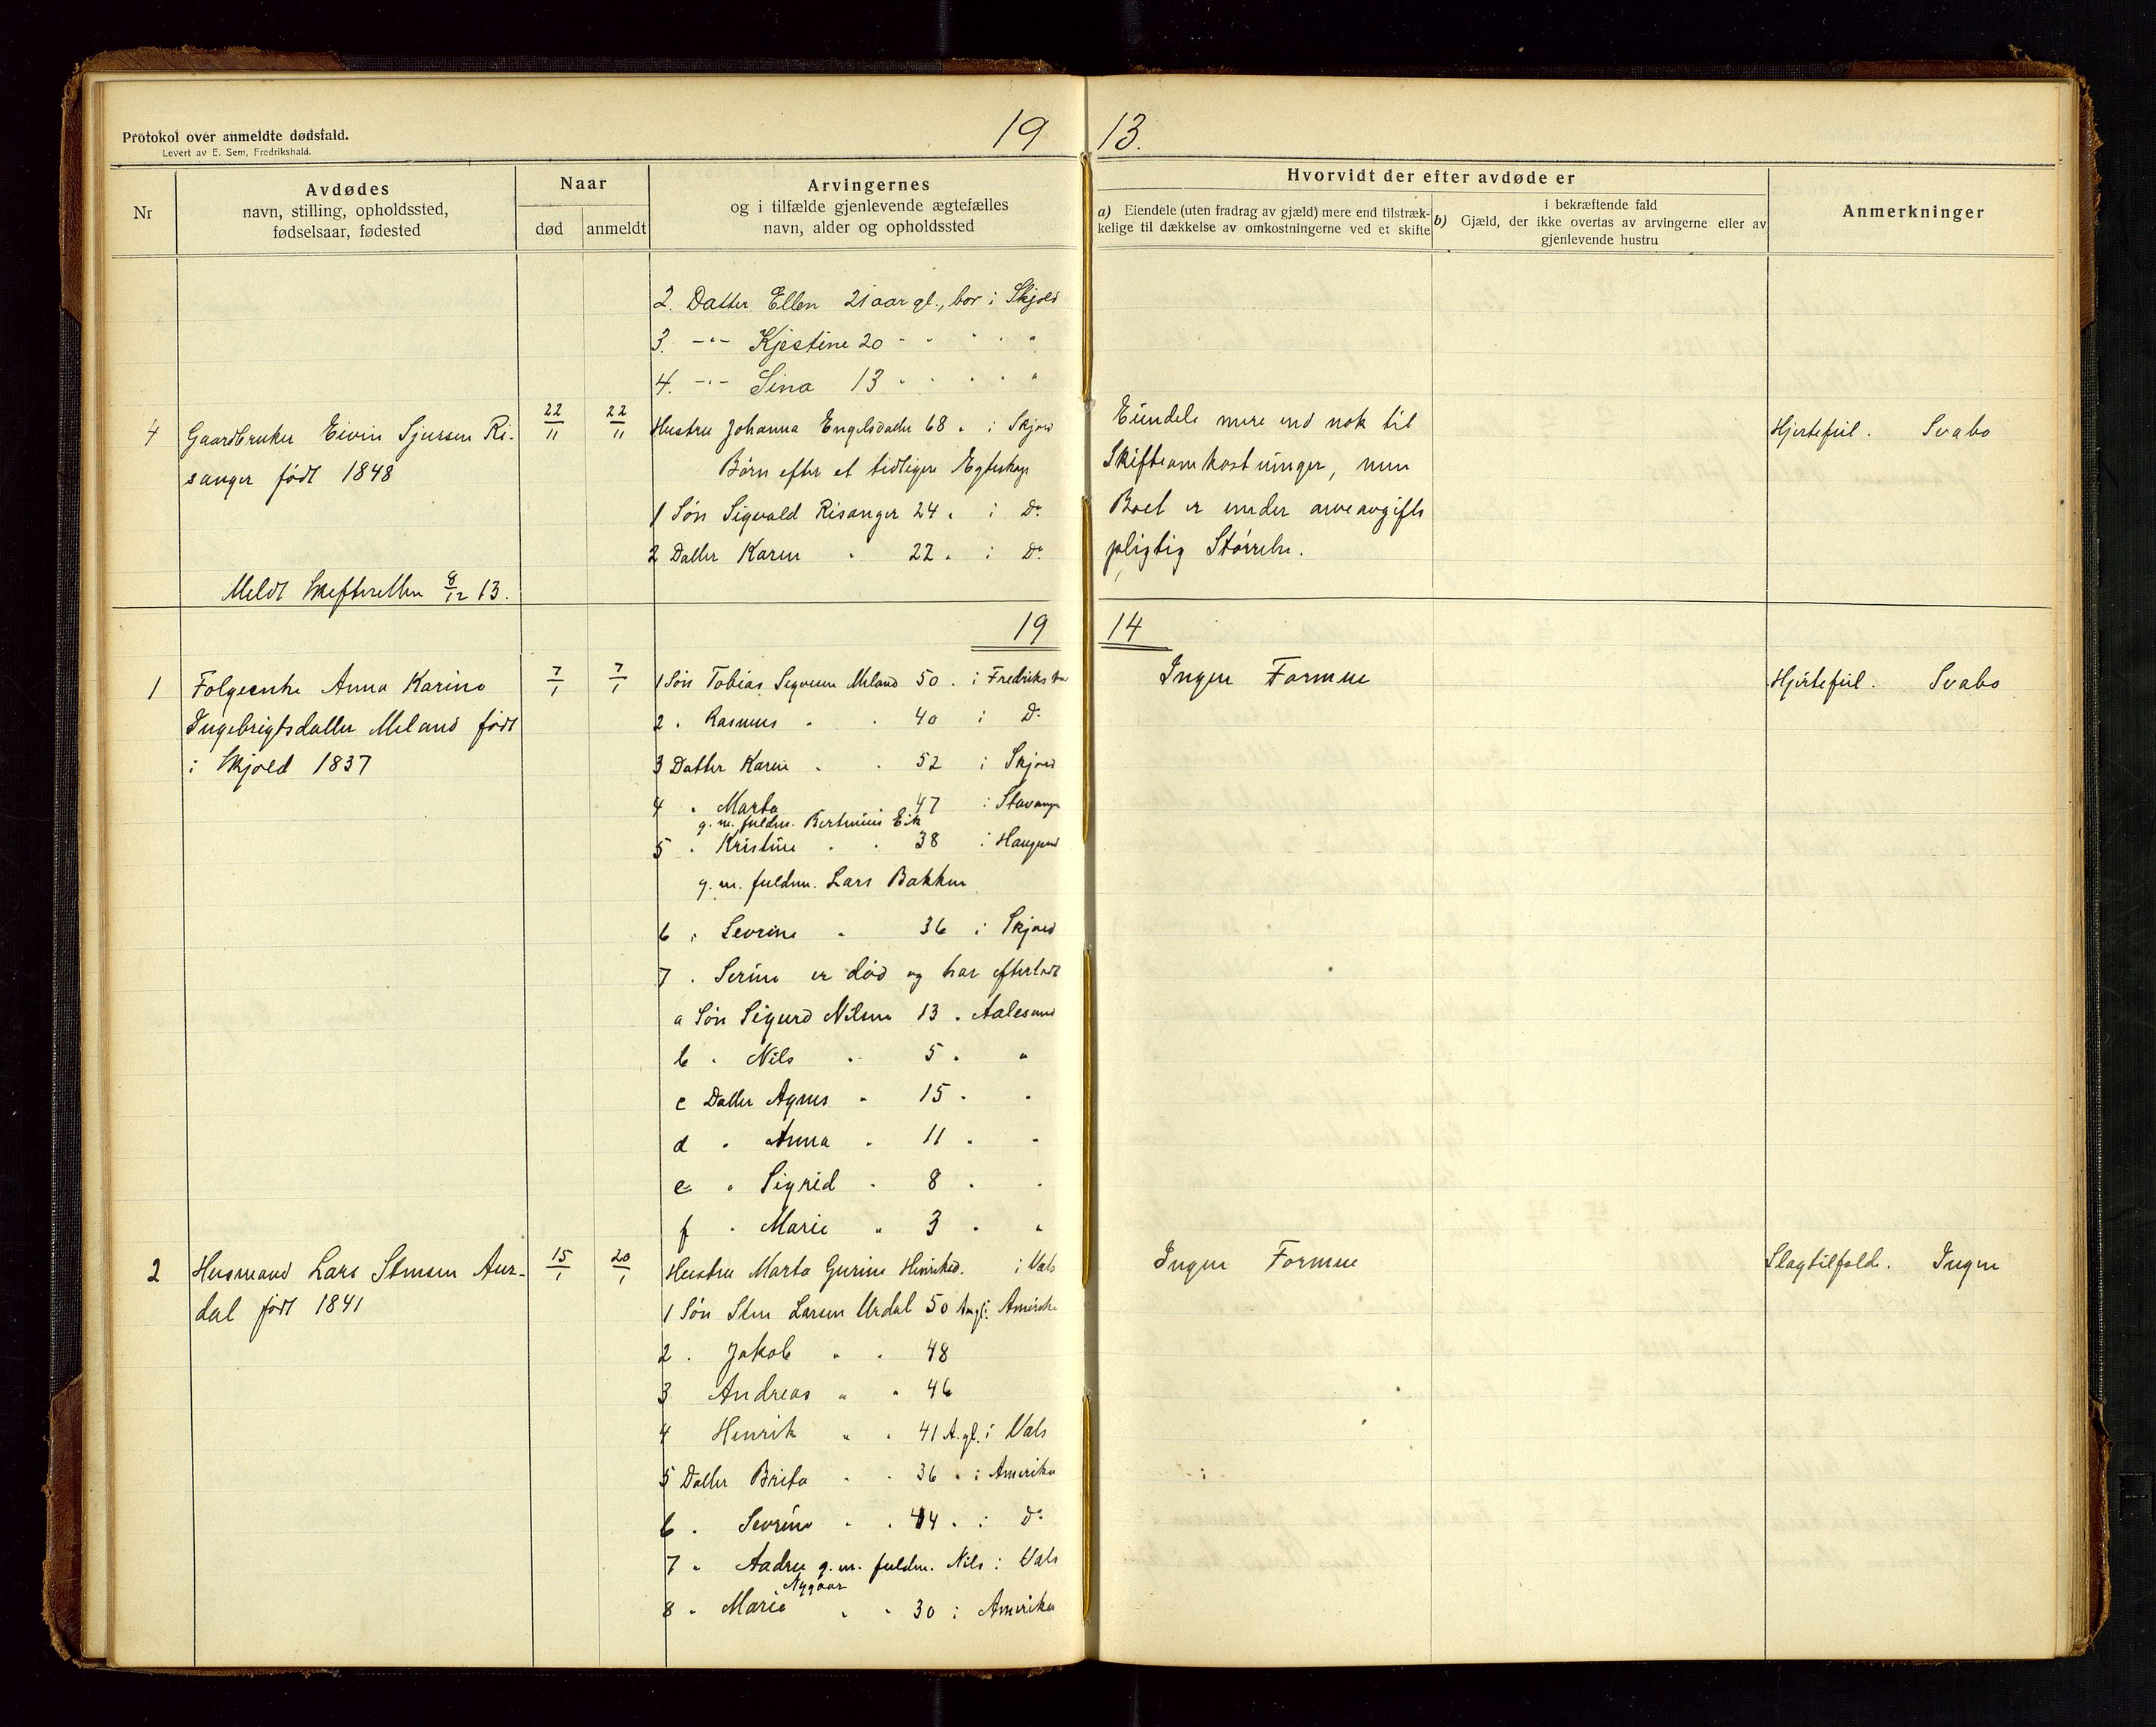 Protokol over anmeldte dødsfald.
Levert av E. Sem, Fredrikshald.
19 13.
Nr
Avdødes
navn, stilling, opholdssted,
fødselsaar, fødested
Naar
død
anmeldt
Arvingernes
og i tilfælde gjenlevende ægtefælles
navn, alder og opholdssted
Hvorvidt der efter avdøde er
a) Eiendele (uten fradrag av gjæld) mere end tilstræk-
kelige til dækkelse av omkostningerne ved et skifte
i bekræftende fald
b) Gjæld, der ikke overtas av arvingerne eller av
gjenlevende hustru
Anmerkninger
2. Datter Ellen 21 aar gl., bor i Skjold
3. -"- Kjestine 20 " " " " "
4. -"- Sina 13 " " " " "
4 Gaardbruker Eivin Sjursen Ri-
sanger født 1848
22/11 22/11
Hustru Johanna Engelsdatter 68 " i Skjold
Børn efter et tidligere Egteskap
1 Søn Sigvald Risanger 24 " i Do
2 Datter Karen " 22 " i Do
Eiendele mere end nok til
Skifteomkostninger, men
Boet er under arveavgifts
pligtig Størrelse.
Hjertefeil. Svabo
Meldt Skifteretten 8/12 13.
19 14
1 Folgeenke Anna Karine
Ingebrigtsdatter Meland født
i Skjold 1837
7/1 7/1
1 Søn Tobias Meland 50 " i Fredrikstad
2 " Rasmus " " 40 i Do
3 Datter Karen " " 52 i Skjold
4 " Marta 47 i Stavanger
g. m. fuldm. Eik
5 " Kristine " " 38 i Haugesund
g. m. fuldm. Lars Bakken
6 " Sevrine " 36 i Skjold
7 " Serine er død og har efterladt
a Søn Sigurd Nilsen 13 " Aalesund
b " Nils " 5 " "
c Datter Agnes " 15 " "
d " Anna " 11 " "
e " Sigrid " 8 " "
f " Marie " 3 " "
Ingen Formue
Hjertefeil. Svabo
2 Husmand Lars Stensen Aur-
dal født 1841
15/1 20/1
Hustru Marta Gurine Henriksd. i Vats
1 Søn Sten Larsen Urdal 50 A. gl. i Amerika
2 " Jakob " " 48
3 Andreas " " 46
4 Henrik " " 41 A. gl. i Vats
5 Datter Brita " " 36 " i Amerika
6 " Sevrine " " 44 " i Do
7 " g. m. fuldm. Nils i Vats
Nygaar
8 " Marie " " 30 i Amerika
Ingen Formue
Slagtilfælde. Ingen